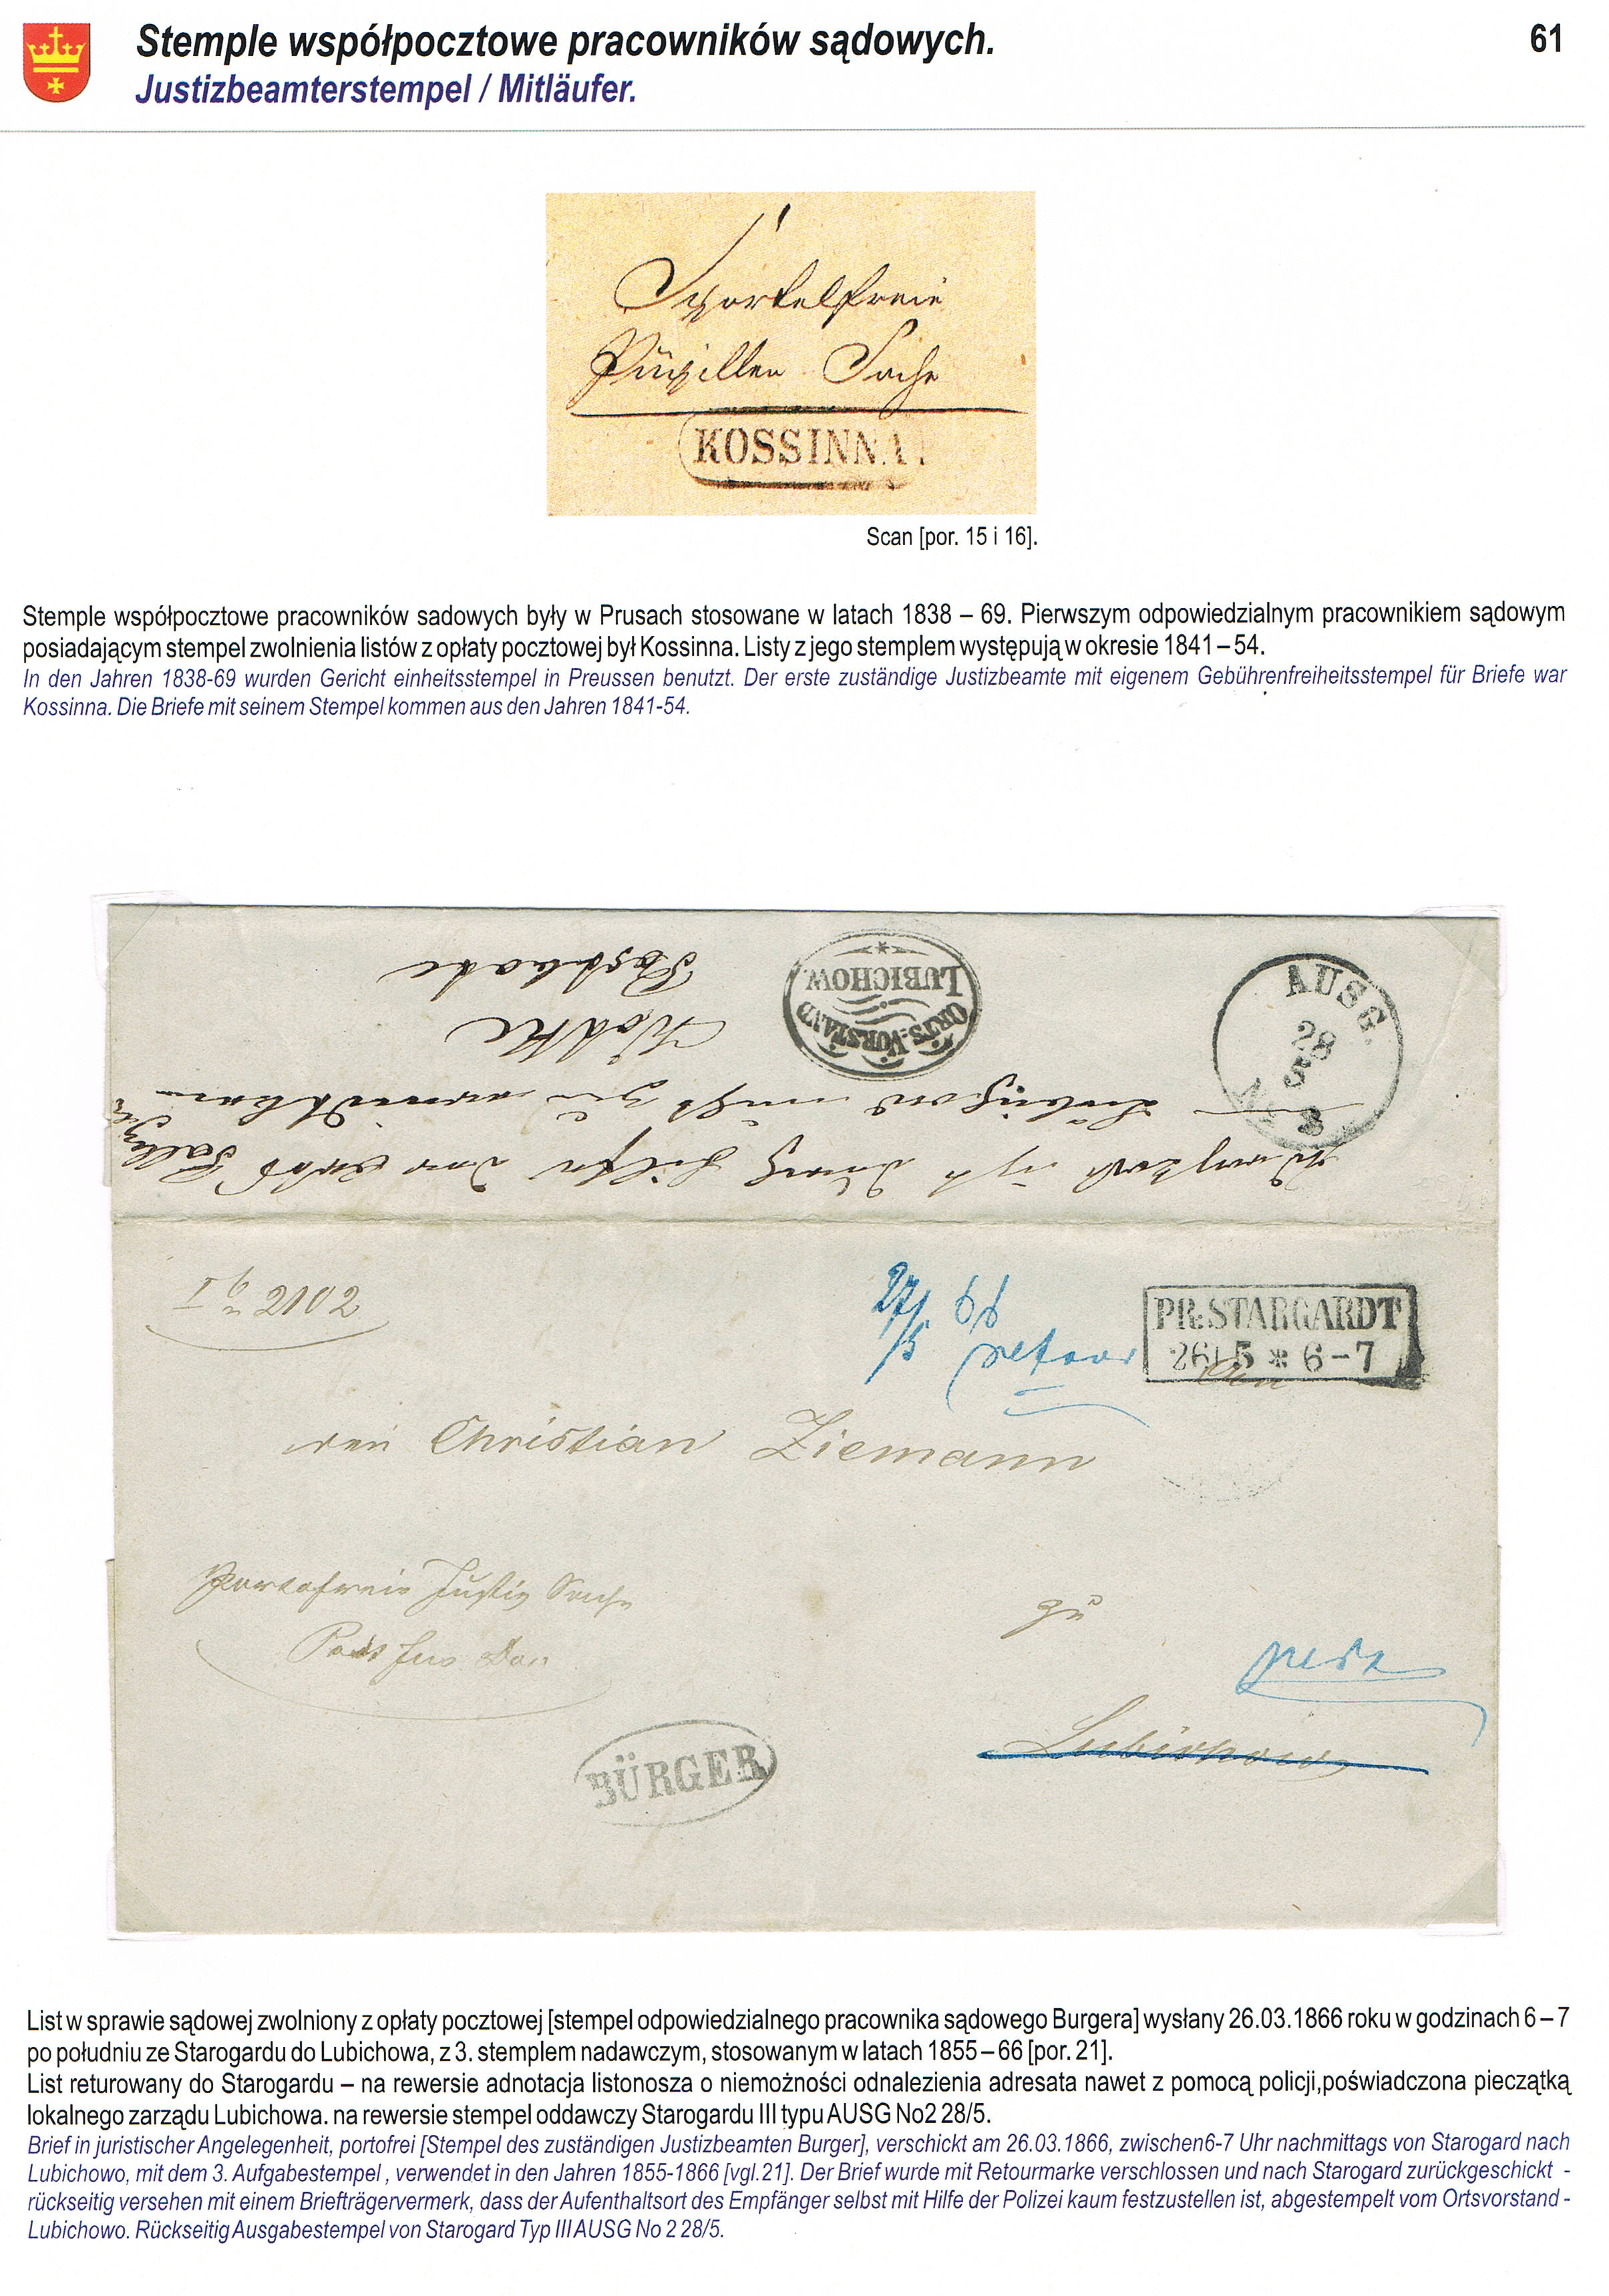 Stemple współpocztowe pracowników sądowych.
61
Justizbeamterstempel / Mitläufer.
Sportelfreie
Pupillen Sache
KOSSINNA.
Scan [por. 15 i 16].
Stemple współpocztowe pracowników sadowych były w Prusach stosowane w latach 1838 – 69. Pierwszym odpowiedzialnym pracownikiem sądowym
posiadającym stempel zwolnienia listów z opłaty pocztowej był Kossinna. Listy z jego stemplem występują w okresie 1841 – 54.
In den Jahren 1838-69 wurden Gericht einheitsstempel in Preussen benutzt. Der erste zuständige Justizbeamte mit eigenem Gebührenfreiheitsstempel für Briefe war
Kossinna. Die Briefe mit seinem Stempel kommen aus den Jahren 1841-54.
ORTS-VORSTAND
LUBICHOW.
AUSG.
28
5
No 2
27/5 66
retour
PR: STARGARDT
26 5 * 6-7
2102
An
den Christian Ziemann
Portofreie Justiz Sache
zu
Lubichow
BÜRGER
List w sprawie sądowej zwolniony z opłaty pocztowej [stempel odpowiedzialnego pracownika sądowego Burgera] wysłany 26.03.1866 roku w godzinach 6 – 7
po południu ze Starogardu do Lubichowa, z 3. stemplem nadawczym, stosowanym w latach 1855 – 66 [por. 21].
List returowany do Starogardu – na rewersie adnotacja listonosza o niemożności odnalezienia adresata nawet z pomocą policji,poświadczona pieczątką
lokalnego zarządu Lubichowa. na rewersie stempel oddawczy Starogardu III typu AUSG No2 28/5.
Brief in juristischer Angelegenheit, portofrei [Stempel des zuständigen Justizbeamten Burger], verschickt am 26.03.1866, zwischen6-7 Uhr nachmittags von Starogard nach
Lubichowo, mit dem 3. Aufgabestempel , verwendet in den Jahren 1855-1866 [vgl.21]. Der Brief wurde mit Retourmarke verschlossen und nach Starogard zurückgeschickt -
rückseitig versehen mit einem Briefträgervermerk, dass der Aufenthaltsort des Empfänger selbst mit Hilfe der Polizei kaum festzustellen ist, abgestempelt vom Ortsvorstand -
Lubichowo. Rückseitig Ausgabestempel von Starogard Typ III AUSG No 2 28/5.